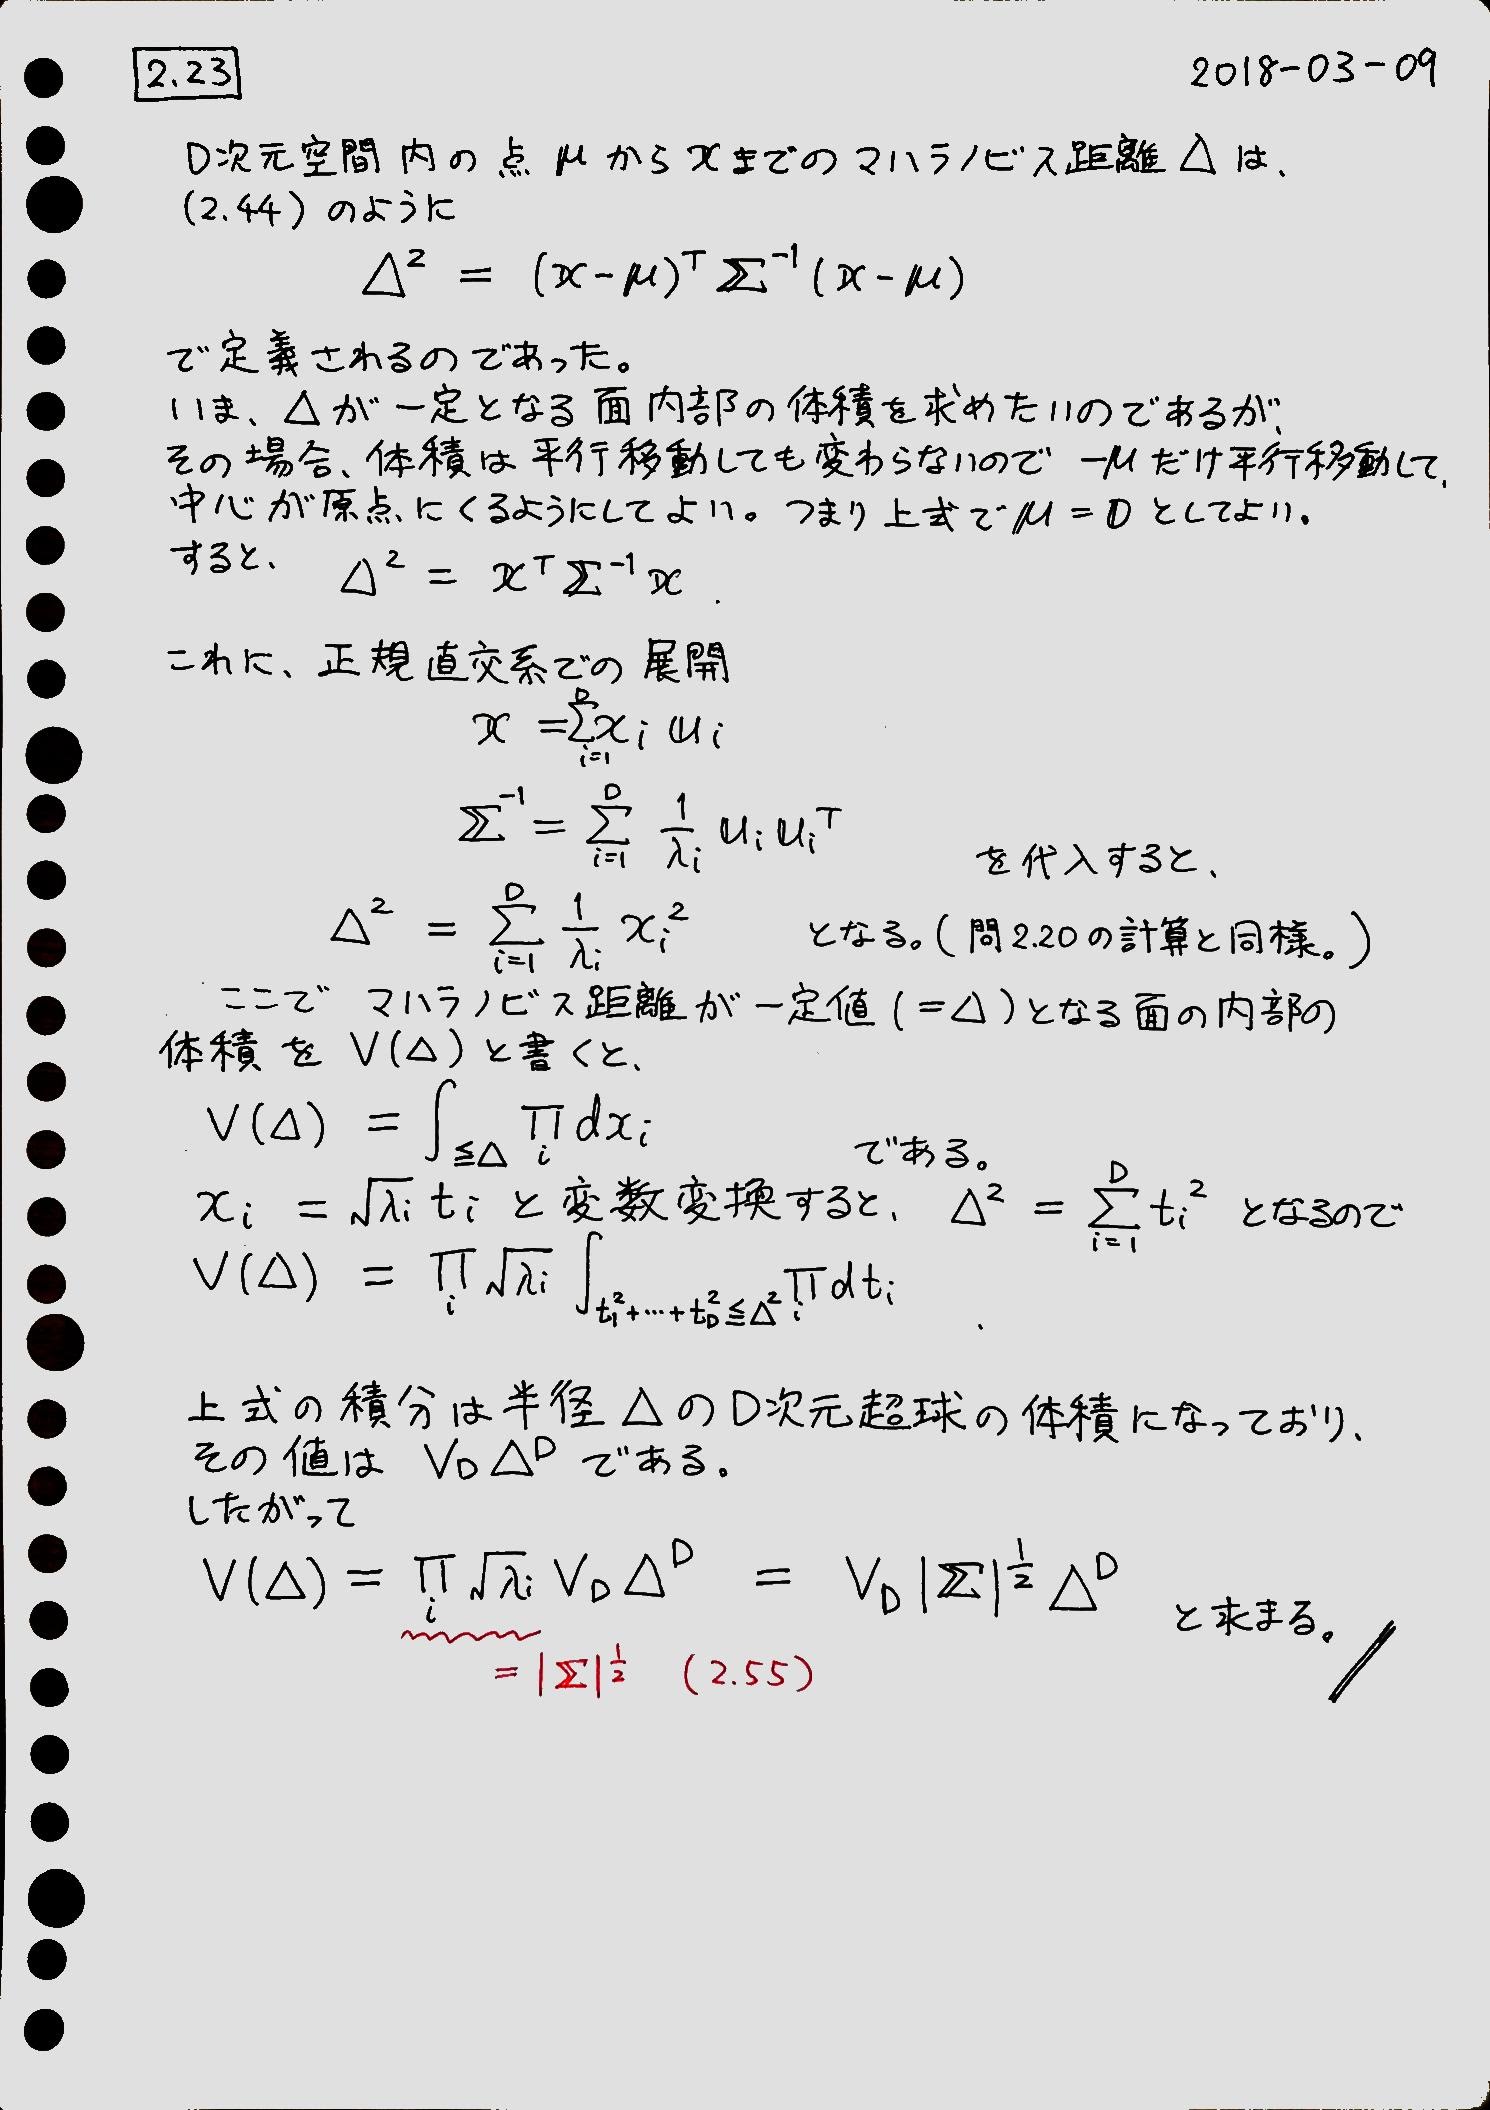 2.23 2018-03-09
D次元空間内の点μからxまでのマハラノビス距離Δは、
(2.44)のように
Δ² = (x-μ)ᵀ Σ⁻¹ (x-μ)
で定義されるのであった。
いま、Δが一定となる面内部の体積を求めたいのであるが、
その場合、体積は平行移動しても変わらないので -μだけ平行移動して、
中心が原点にくるようにしてよい。つまり上式でμ=0としてよい。
すると、 Δ² = xᵀΣ⁻¹x .
これに、正規直交系での展開
x = ∑_{i=1}^{D} x_i u_i
Σ⁻¹ = ∑_{i=1}^{D} 1/λ_i u_i u_iᵀ を代入すると、
Δ² = ∑_{i=1}^{D} 1/λ_i x_i² となる。(問2.20の計算と同様。)
ここで マハラノビス距離が一定値(=Δ)となる面の内部の
体積を V(Δ)と書くと、
V(Δ) = ∫_{≦Δ} ∏_i dx_i である。
x_i = √λ_i t_i と変数変換すると、 Δ² = ∑_{i=1}^{D} t_i² となるので
V(Δ) = ∏_i √λ_i ∫_{t_1²+…+t_D²≦Δ²} ∏_i dt_i .
上式の積分は半径ΔのD次元超球の体積になっており、
その値は V_D Δ^D である。
したがって
V(Δ) = ∏_i √λ_i V_D Δ^D = V_D |Σ|^{1/2} Δ^D と求まる。
= |Σ|^{1/2} (2.55)